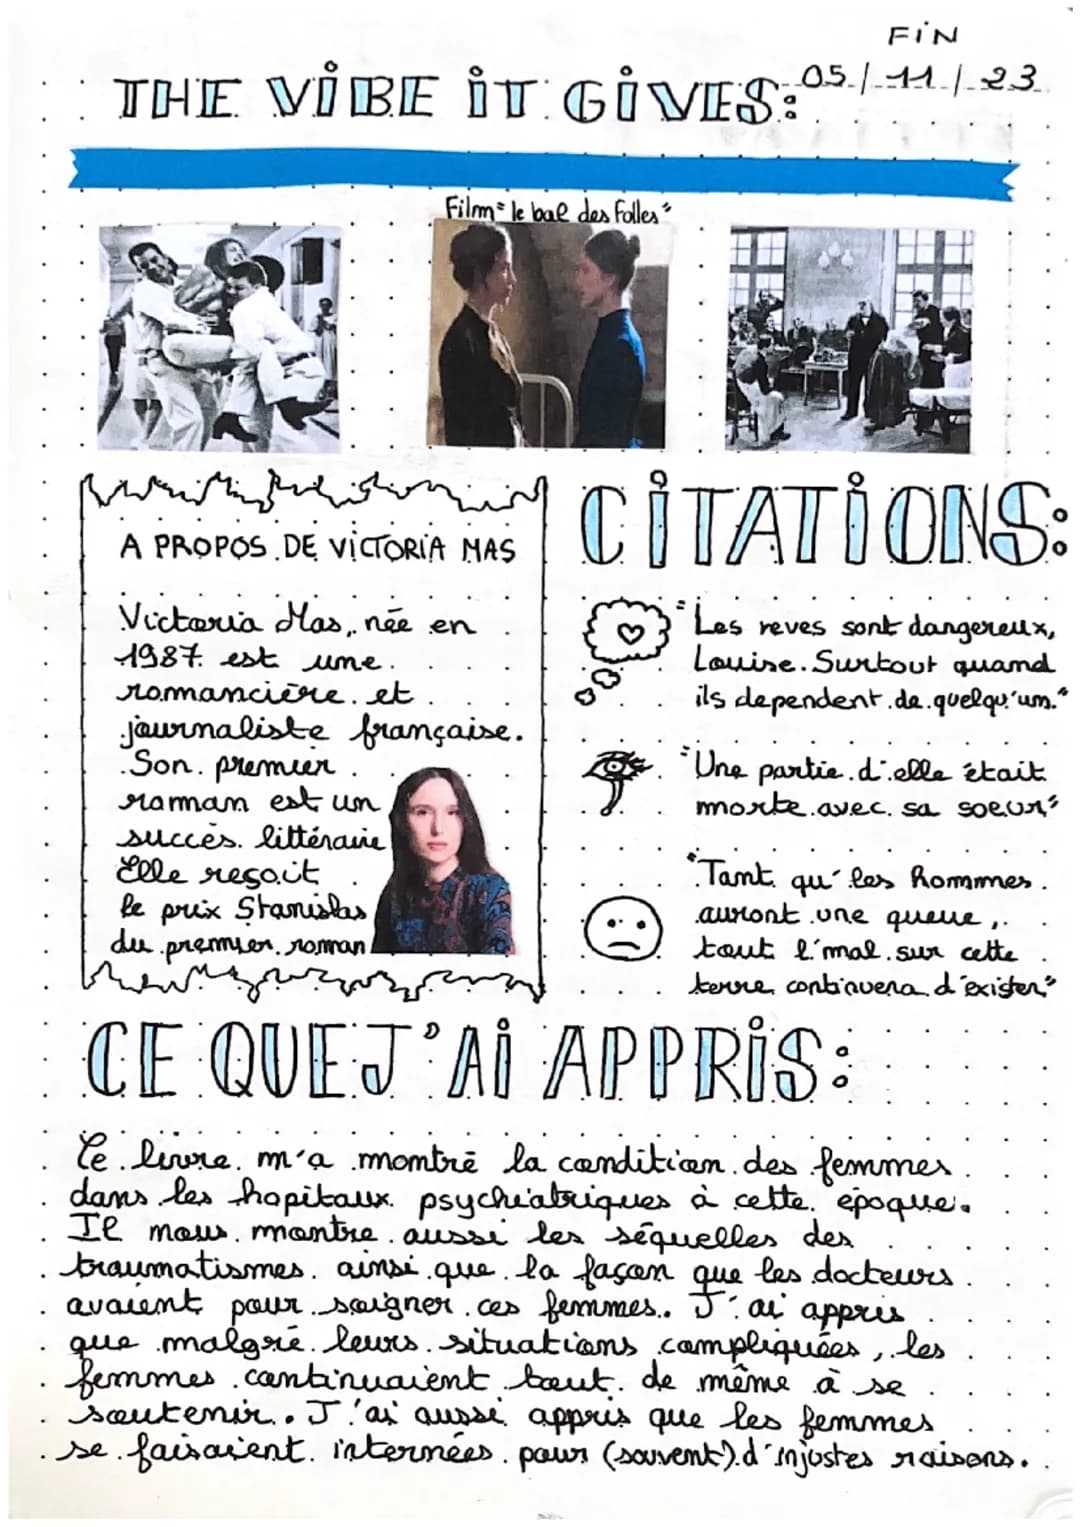 FiN
THE ViBE iT GiVES:
05/11/23
Film "le bal des folles"
A PROPOS DE ViCTORiA MAS
Victoria Mas, née en
1987 est une
romancière et
journaliste française.
Son premier
roman est un
succès littéraire
Elle reçoit
le prix Stanislas
du premier roman
CiTATiONS:
"Les reves sont dangereux,
Louise. Surtout quand
ils dependent de quelqu'un."
"Une partie d'elle était
morte avec sa soeur"
"Tant qu'les hommes
auront une queue,
tout l'mal sur cette
terre continuera d'exister"
CE QUE J'Ai APPRiS:
Ce livre m'a montré la condition des femmes
dans les hopitaux psychiatriques à cette époque.
Il nous montre aussi les séquelles des
traumatismes ainsi que la façon que les docteurs
avaient pour soigner ces femmes. J'ai appris
que malgré leurs situations compliquées, les
femmes continuaient tout de même à se
soutenir. J'ai aussi appris que les femmes
se faisaient internées pour (souvent) d'injustes raisons.